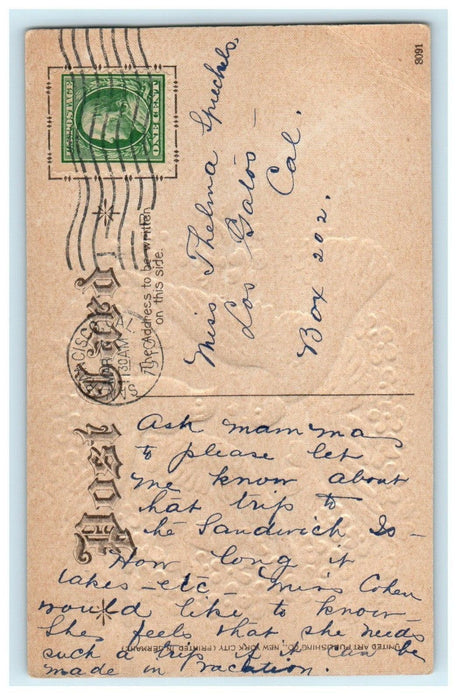 8091
U.S. POSTAGE
ONE CENT
Post Card
The Address to be written
on this side.
CISCO, CAL.
APR
130AM
1910
Miss Thelma Spreckels.
Los Gatos —
Cal.
Box 202.
Ask mamma
to please let
me know about
that trip to
the Sandwich Is —
How long it
takes — etc — Miss Cohen
would like to know —
She feels that she needs
such a trip if it can be
made in vacation.
UNITED ART PUBLISHING CO., NEW YORK CITY (PRINTED IN GERMANY)